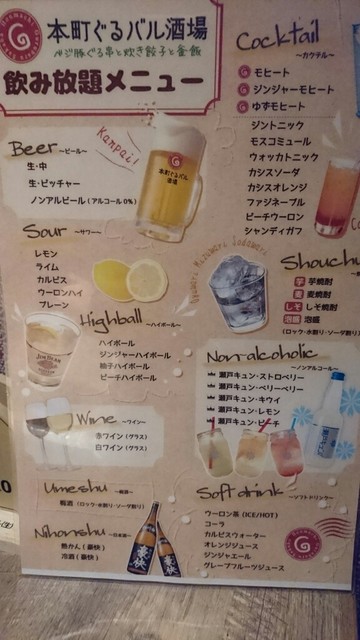 本町ぐるバル酒場
ベジ豚ぐる串と炊き餃子と釜飯
飲み放題メニュー
Kanpai!
本町ぐるバル
酒場
Beer ～ビール～
生・中
生・ピッチャー
ノンアルビール（アルコール0%）
Sour ～サワー～
レモン
ライム
カルピス
ウーロンハイ
プレーン
Highball ～ハイボール～
ハイボール
ジンジャーハイボール
柚子ハイボール
ピーチハイボール
JIM BEAM
Wine ～ワイン～
赤ワイン（グラス）
白ワイン（グラス）
Umeshu ～梅酒～
梅酒（ロック・水割り・ソーダ割り）
Nihonshu ～日本酒～
熱かん（豪快）
冷酒（豪快）
豪快
豪快
Cocktail
～カクテル～
モヒート
ジンジャーモヒート
ゆずモヒート
ジントニック
モスコミュール
ウォッカトニック
カシスソーダ
カシスオレンジ
ファジネーブル
ピーチウーロン
シャンディガフ
Shouchu
芋 芋焼酎
麦 麦焼酎
しそ しそ焼酎
泡盛 泡盛
（ロック・水割り・ソーダ割り
Non-alcoholic
～ノンアルコール～
瀬戸キュン・ストロベリー
瀬戸キュン・ベリーベリー
瀬戸キュン・キウイ
瀬戸キュン・レモン
瀬戸キュン・ピーチ
Soft drink ～ソフトドリンク～
ウーロン茶（ICE/HOT）
コーラ
カルピスウォーター
オレンジジュース
ジンジャエール
グレープフルーツジュース